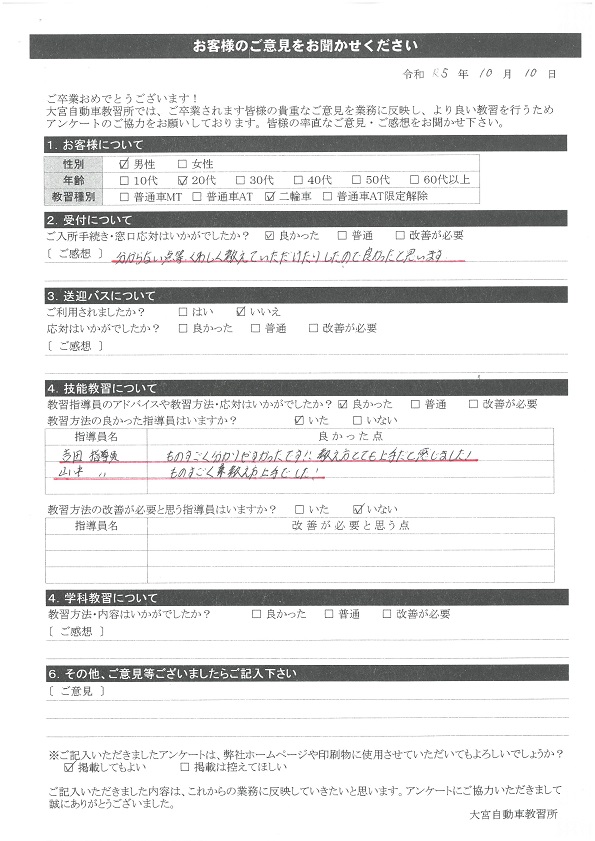 お客様のご意見をお聞かせください
令和 R5 年 10 月 10 日
ご卒業おめでとうございます！
大宮自動車教習所では、ご卒業されます皆様の貴重なご意見を業務に反映し、より良い教習を行うため
アンケートのご協力をお願いしております。皆様の率直なご意見・ご感想をお聞かせ下さい。
1. お客様について
性別 ☑ 男性 □ 女性
年齢 □ 10代 ☑ 20代 □ 30代 □ 40代 □ 50代 □ 60代以上
教習種別 □ 普通車MT □ 普通車AT ☑ 二輪車 □ 普通車AT限定解除
2. 受付について
ご入所手続き・窓口応対はいかがでしたか？ ☑ 良かった □ 普通 □ 改善が必要
[ ご感想 ] 分からない点等、くわしく教えていただけたりしたので良かったと思います
3. 送迎バスについて
ご利用されましたか？ □ はい ☑ いいえ
応対はいかがでしたか？ □ 良かった □ 普通 □ 改善が必要
[ ご感想 ]
4. 技能教習について
教習指導員のアドバイスや教習方法・応対はいかがでしたか？ ☑ 良かった □ 普通 □ 改善が必要
教習方法の良かった指導員はいますか？ ☑ いた □ いない
指導員名 良かった点
吉田 指導員 ものすごく分かりやすかったです！！教え方とても上手だと感じました！
山本 〃 ものすごく教え方上手でした！
教習方法の改善が必要と思う指導員はいますか？ □ いた ☑ いない
指導員名 改善が必要と思う点
4. 学科教習について
教習方法・内容はいかがでしたか？ □ 良かった □ 普通 □ 改善が必要
[ ご感想 ]
6. その他、ご意見等ございましたらご記入下さい
[ ご意見 ]
※ご記入いただきましたアンケートは、弊社ホームページや印刷物に使用させていただいてもよろしいでしょうか？
☑ 掲載してもよい □ 掲載は控えてほしい
ご記入いただきました内容は、これからの業務に反映していきたいと思います。アンケートにご協力いただきまして
誠にありがとうございました。
大宮自動車教習所